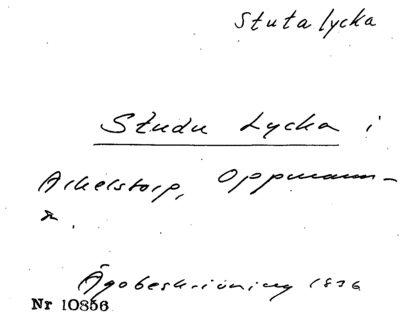 Stutalycka
Studu Lycka i
Arkelstorp, Oppmann-
a.
Ägobeskrivning 1836
Nr 10856